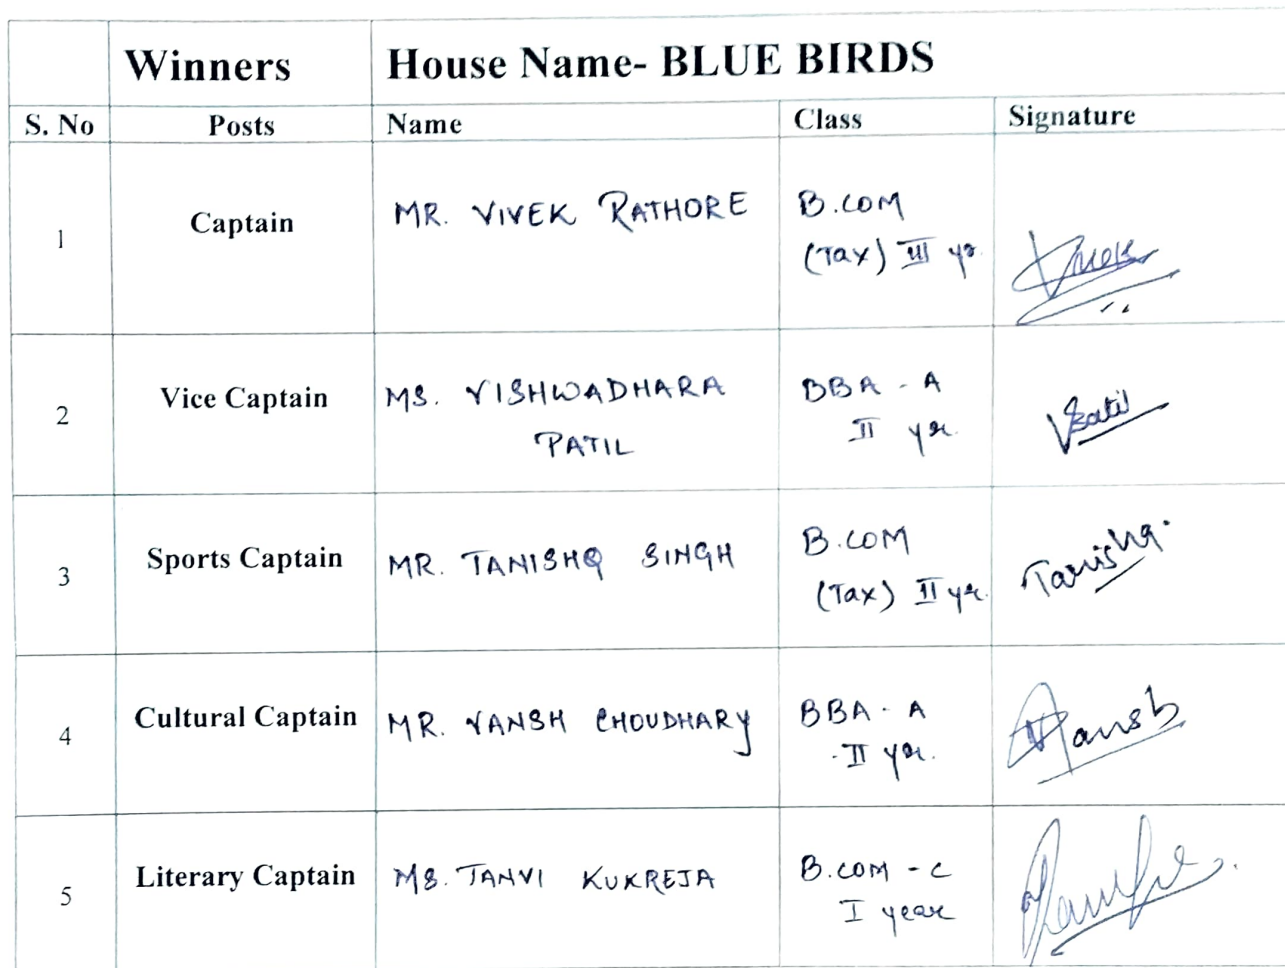 Winners House Name- BLUE BIRDS
S. No Posts Name Class Signature
1 Captain MR. VIVEK RATHORE B.COM
(Tax) III yr.
Vivek
2 Vice Captain MS. VISHWADHARA BBA - A
PATIL II yr.
VPatil
3 Sports Captain MR. TANISHQ SINGH B.COM
(Tax) II yr.
Tanishq.
4 Cultural Captain MR. VANSH CHOUDHARY BBA - A
II yr.
Vansh
5 Literary Captain MS. TANVI KUKREJA B.COM - C
I year